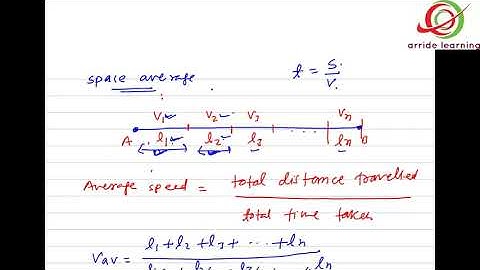 arride learning
space average
t = S/V
V1 V2 V3 Vn
A l1 l2 l3 ...... ln B
Average speed = total distance travelled / total time taken
Vav = l1 + l2 + l3 + ... + ln